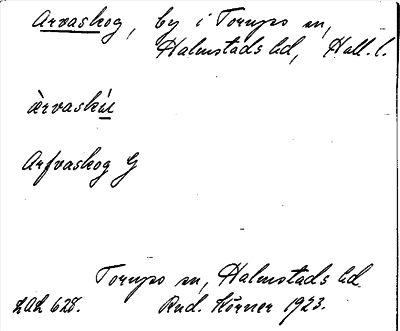 Arvaskog, by i Torups sn,
Halmstads hd, Hall. l.
àrvaskú
Arfvaskog G
Torups sn, Halmstads hd.
LAL 628. Rud. Körner 1923.